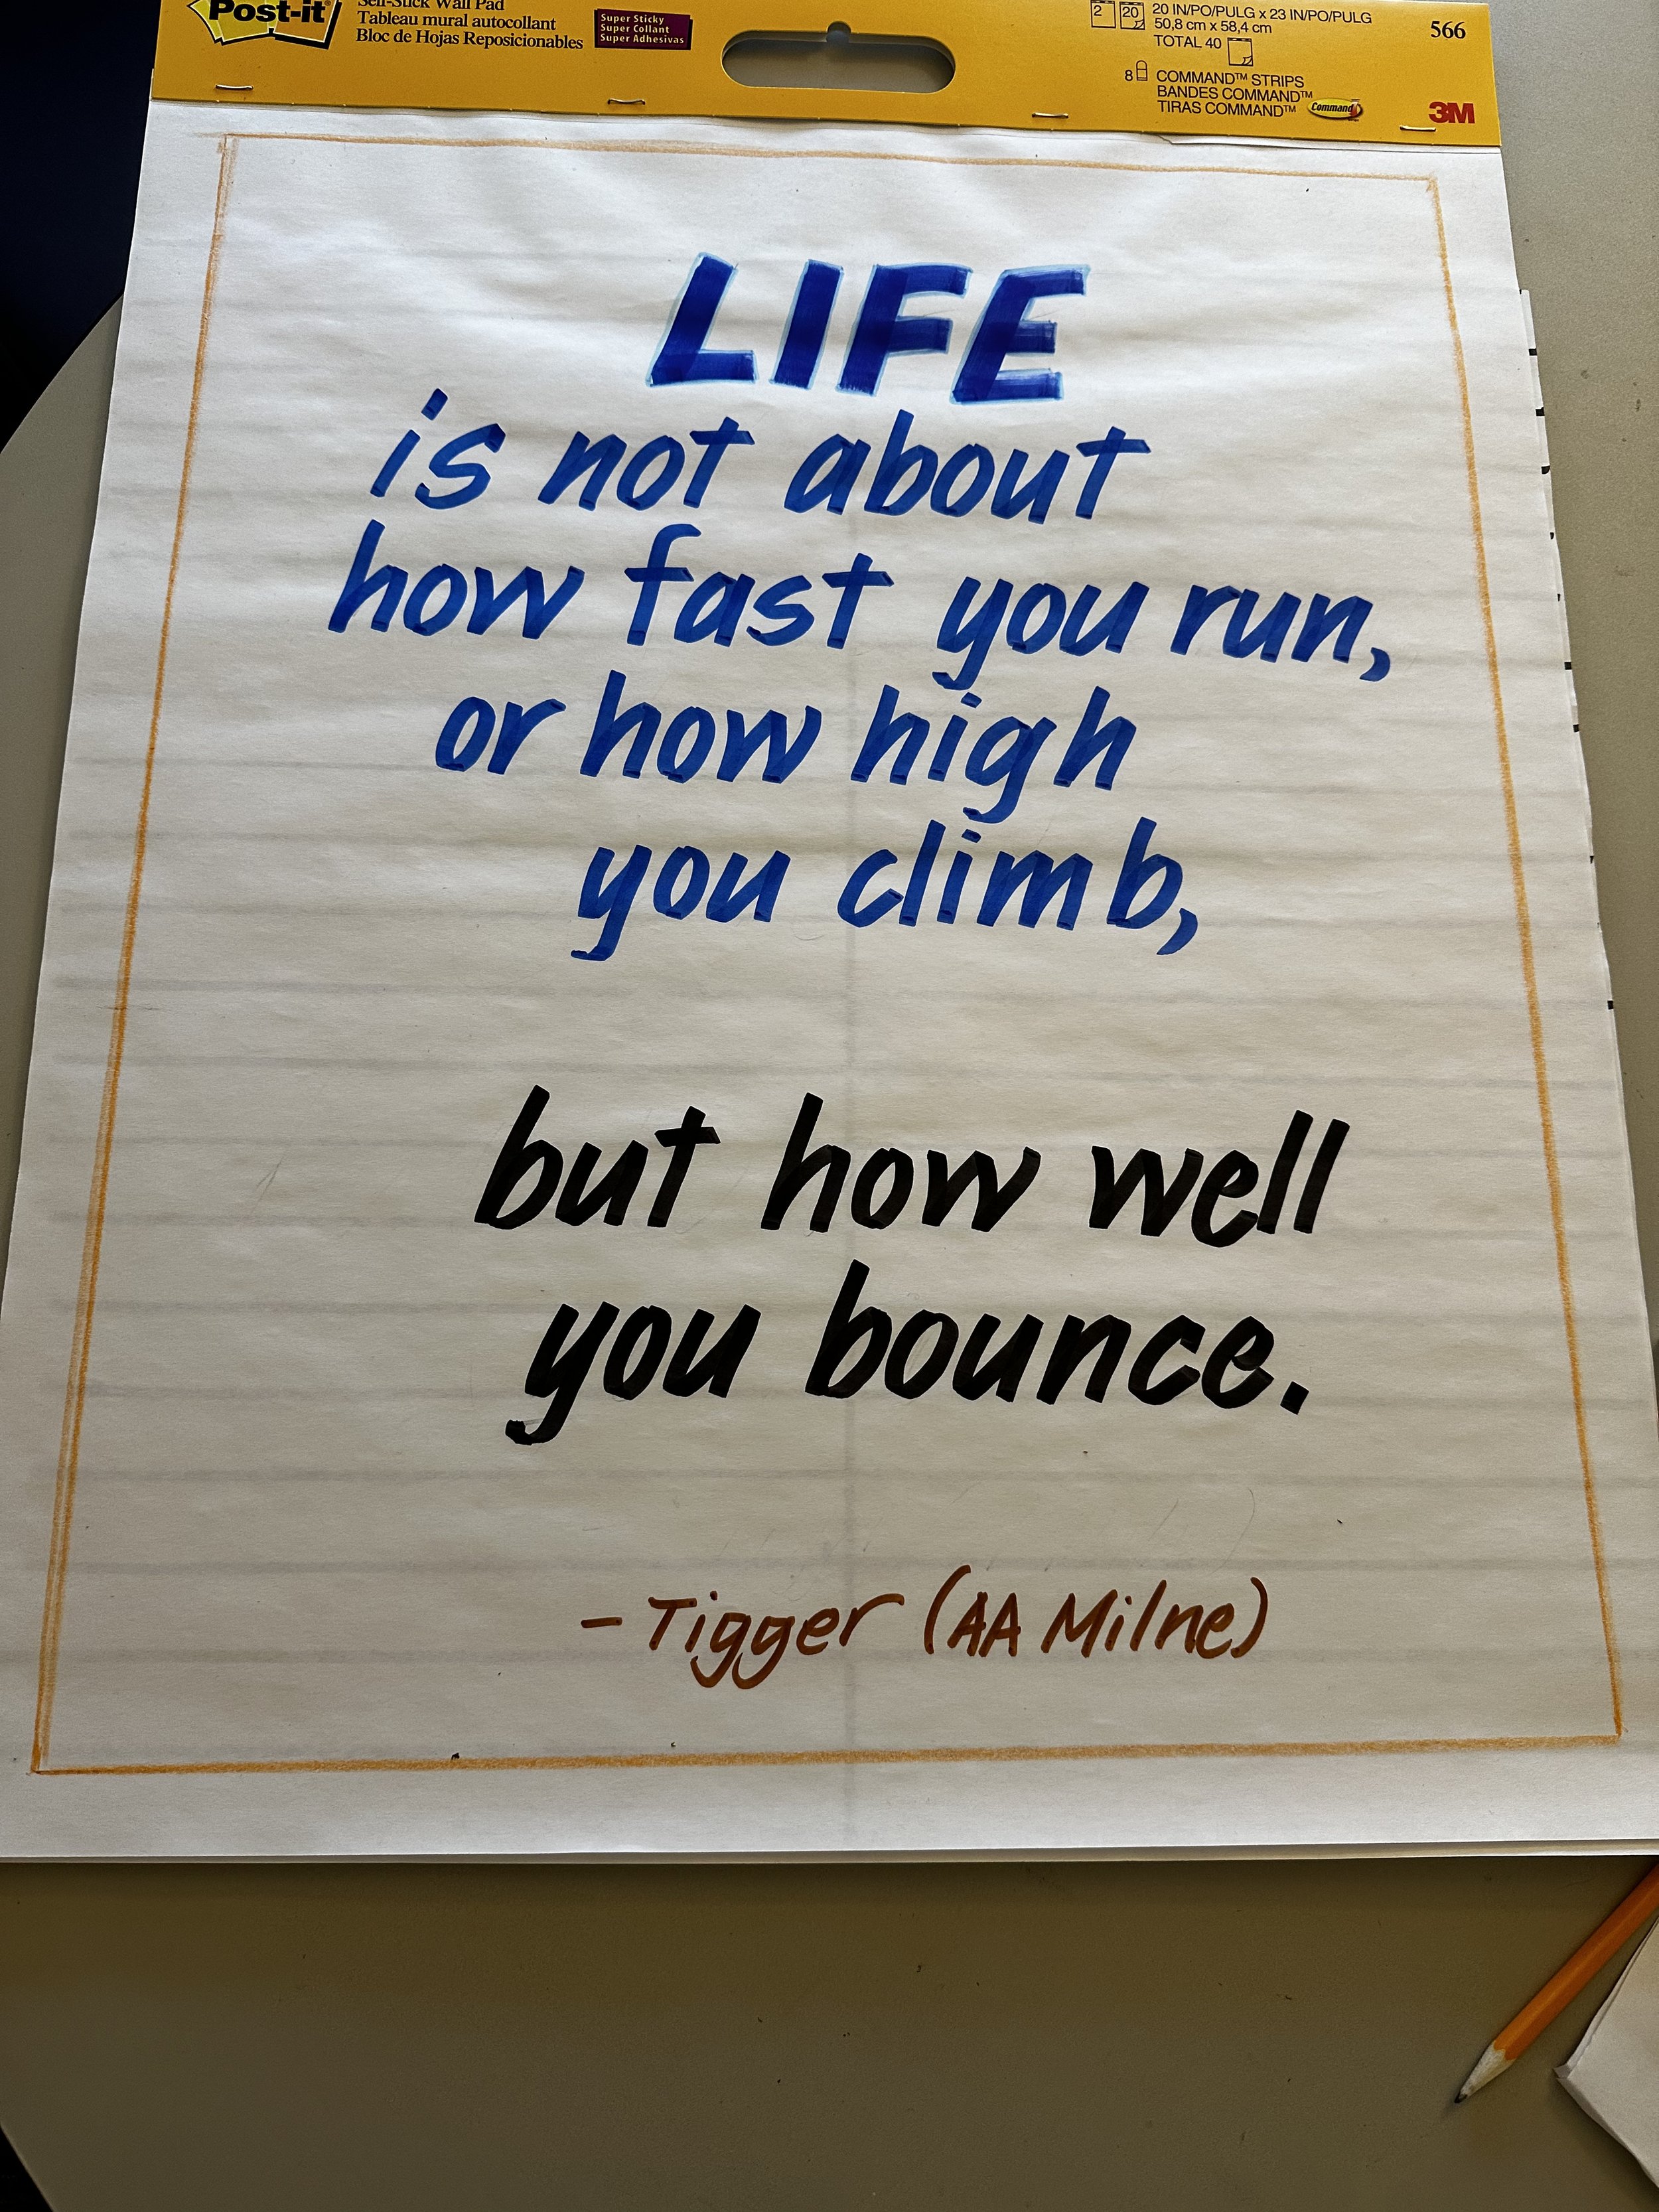 Post-it
Self-Stick Wall Pad
Tableau mural autocollant
Bloc de Hojas Reposicionables
Super Sticky
Super Collant
Super Adhesivas
2 20 20 IN/PO/PULG x 23 IN/PO/PULG
50,8 cm x 58,4 cm
TOTAL 40
8 COMMAND™ STRIPS
BANDES COMMAND™
TIRAS COMMAND™ Command
566
3M
LIFE
is not about
how fast you run,
or how high
you climb,
but how well
you bounce.
- Tigger (AA Milne)